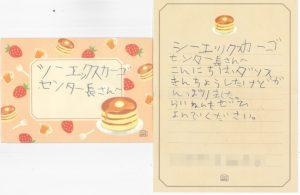 シーエックスカーゴ
センター長さんへ
シーエックスカーゴ
センター長さんへ
こんにちは、ダンス
きんちょうしたけどが
んばりました。
らいねんもぜひ
よんでください。